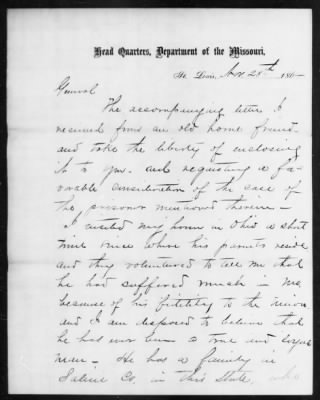 Head Quarters, Department of the Missouri,
St. Louis, Nov. 28th 186
General
The accompanying letter I
received from an old home friend
and take the liberty of enclosing
it to you and requesting a fa-
vorable consideration of the case of
the prisoner mentioned therein—
I visited my home in Ohio a short
time since where his parents reside
and they volunteered to tell me that
he had suffered much in Mo.
because of his fidelity to the Union
and I am disposed to believe that
he has ever been a true and loyal
man— He has a family in
Saline Co. in this State, who